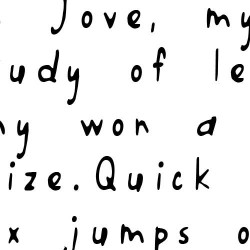 Jove, my
udy of le
ny won a
ize.Quick
x jumps o